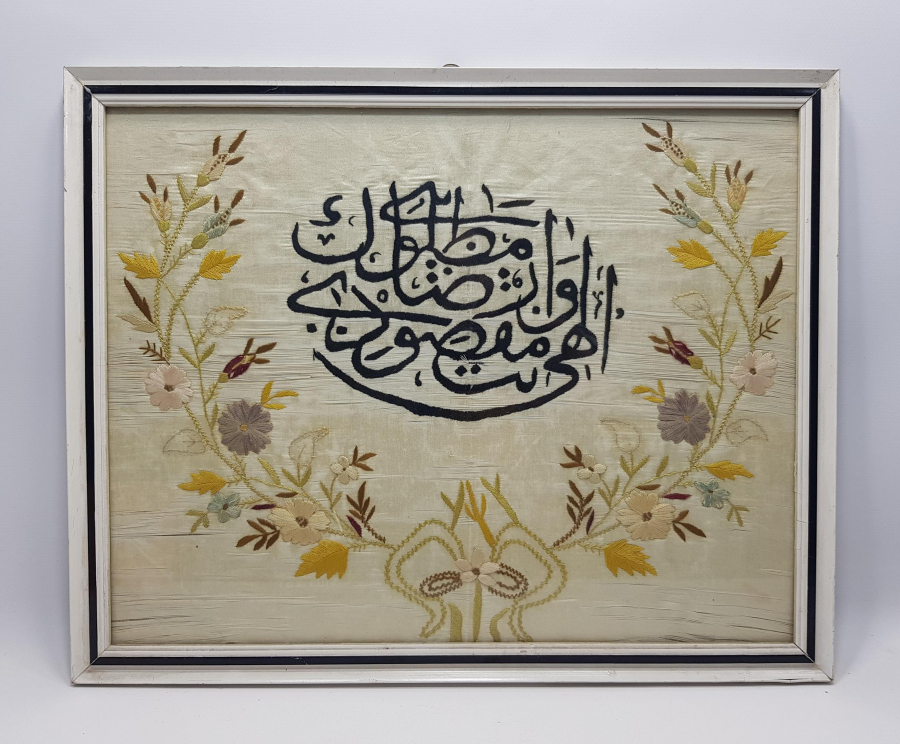 الهى انت مقصودى و رضاك مطلوبى